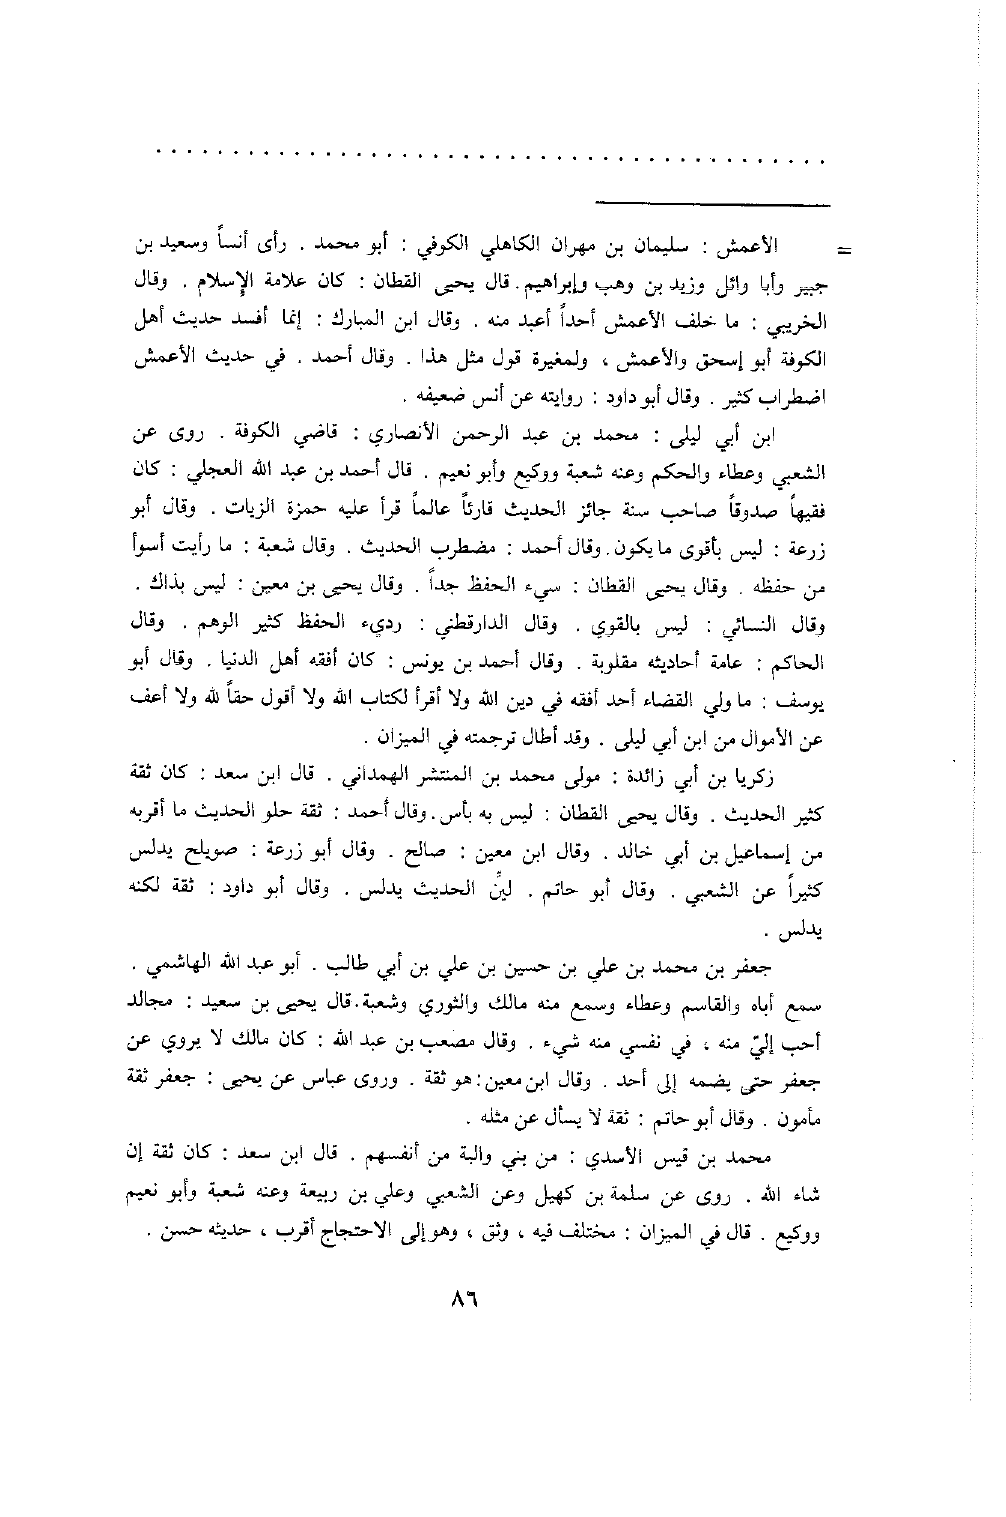 . . . . . . . . . . . . . . . . . . . . . . . . . . . . . . . . . . . . . . . . . . . .
= الأعمش : سليمان بن مهران الكاهلي الكوفي : أبو محمد . رأى أنساً وسعيد بن
جبير وأبا وائل وزيد بن وهب وإبراهيم. قال يحيى القطان : كان علامة الإسلام . وقال
الخريبي : ما خلف الأعمش أحداً أعبد منه . وقال ابن المبارك : إنما أفسد حديث أهل
الكوفة أبو إسحق والأعمش ، ولمغيرة قول مثل هذا . وقال أحمد . في حديث الأعمش
اضطراب كثير . وقال أبو داود : روايته عن أنس ضعيفه .
ابن أبي ليلى : محمد بن عبد الرحمن الأنصاري : قاضي الكوفة . روى عن
الشعبي وعطاء والحكم وعنه شعبة ووكيع وأبو نعيم . قال أحمد بن عبد الله العجلي : كان
فقيهاً صدوقاً صاحب سنة جائز الحديث قارئاً عالماً قرأ عليه حمزة الزيات . وقال أبو
زرعة : ليس بأقوى ما يكون. وقال أحمد : مضطرب الحديث . وقال شعبة : ما رأيت أسوأ
من حفظه . وقال يحيى القطان : سيء الحفظ جداً . وقال يحيى بن معين : ليس بذاك .
وقال النسائي : ليس بالقوي . وقال الدارقطني : رديء الحفظ كثير الوهم . وقال
الحاكم : عامة أحاديثه مقلوبة . وقال أحمد بن يونس : كان أفقه أهل الدنيا . وقال أبو
يوسف : ما ولي القضاء أحد أفقه في دين الله ولا أقرأ لكتاب الله ولا أقول حقاً لله ولا أعف
عن الأموال من ابن أبي ليلى . وقد أطال ترجمته في الميزان .
زكريا بن أبي زائدة : مولى محمد بن المنتشر الهمداني . قال ابن سعد : كان ثقة
كثير الحديث . وقال يحيى القطان : ليس به بأس. وقال أحمد : ثقة حلو الحديث ما أقربه
من إسماعيل بن أبي خالد . وقال ابن معين : صالح . وقال أبو زرعة : صويلح يدلس
كثيراً عن الشعبي . وقال أبو حاتم . لينِّ الحديث يدلس . وقال أبو داود : ثقة لكنه
يدلس .
جعفر بن محمد بن علي بن حسين بن علي بن أبي طالب . أبو عبد الله الهاشمي .
سمع أباه والقاسم وعطاء وسمع منه مالك والثوري وشعبة. قال يحيى بن سعيد : مجالد
أحب إليّ منه ، في نفسي منه شيء . وقال مصعب بن عبد الله : كان مالك لا يروي عن
جعفر حتى يضمه إلى أحد . وقال ابن معين: هو ثقة . وروى عباس عن يحيى : جعفر ثقة
مأمون . وقال أبو حاتم : ثقة لا يسأل عن مثله .
محمد بن قيس الأسدي : من بني والبة من أنفسهم . قال ابن سعد : كان ثقة إن
شاء الله . روى عن سلمة بن كهيل وعن الشعبي وعلي بن ربيعة وعنه شعبة وأبو نعيم
ووكيع . قال في الميزان : مختلف فيه ، وثق ، وهو إلى الاحتجاج أقرب ، حديثه حسن .
٨٦